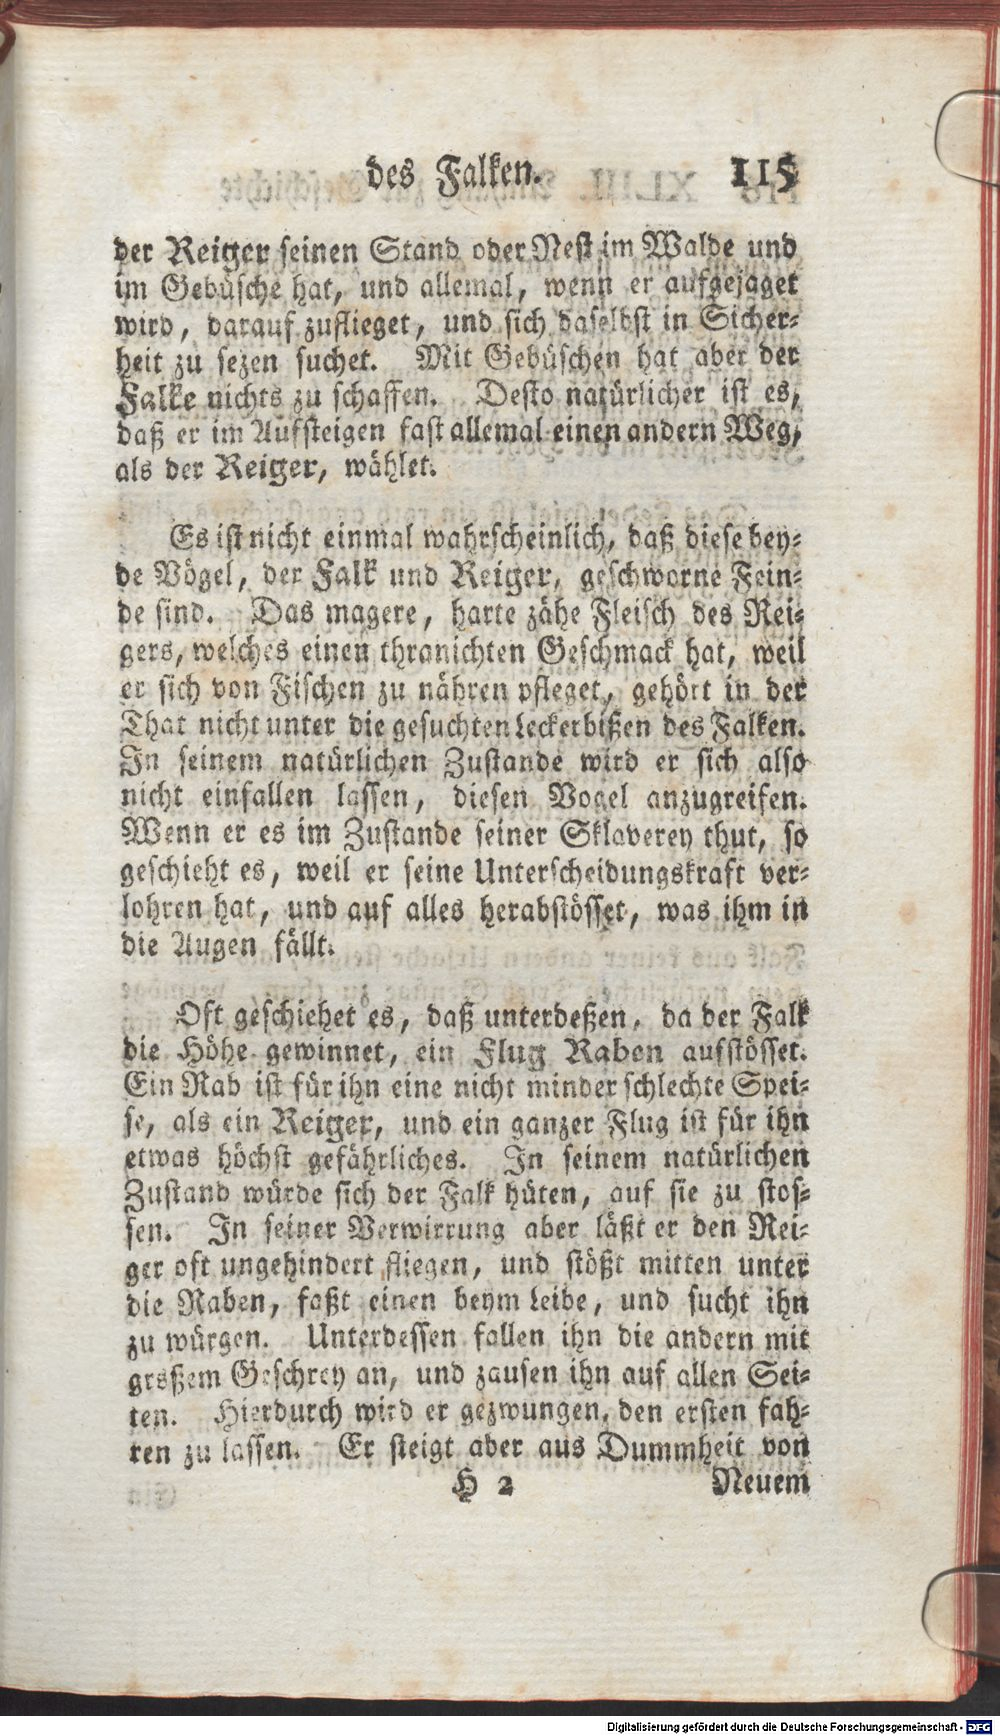 des Falken. 115
der Reiger seinen Stand oder Nest im Walde und
im Gebüsche hat, und allemal, wenn er aufgejaget
wird, darauf zuflieget, und sich daselbst in Sicher-
heit zu sezen suchet. Mit Gebüschen hat aber der
Falke nichts zu schaffen. Desto natürlicher ist es,
daß er im Aufsteigen fast allemal einen andern Weg,
als der Reiger, wählet.
Es ist nicht einmal wahrscheinlich, daß diese bey-
de Vögel, der Falk und Reiger, geschworne Fein-
de sind. Das magere, harte zähe Fleisch des Rei-
gers, welches einen thranichten Geschmack hat, weil
er sich von Fischen zu nähren pfleget, gehört in der
That nicht unter die gesuchten Leckerbißen des Falken.
In seinem natürlichen Zustande wird er sich also
nicht einfallen lassen, diesen Vogel anzugreifen.
Wenn er es im Zustande seiner Sklaverey thut, so
geschieht es, weil er seine Unterscheidungskraft ver-
lohren hat, und auf alles herabstösset, was ihm in
die Augen fällt.
Oft geschiehet es, daß unterdeßen, da der Falk
die Höhe gewinnet, ein Flug Raben aufstösset.
Ein Rab ist für ihn eine nicht minder schlechte Spei-
se, als ein Reiger, und ein ganzer Flug ist für ihn
etwas höchst gefährliches. In seinem natürlichen
Zustand würde sich der Falk hüten, auf sie zu stos-
sen. In seiner Verwirrung aber läßt er den Rei-
ger oft ungehindert fliegen, und stößt mitten unter
die Raben, faßt einen beym Leibe, und sucht ihn
zu würgen. Unterdessen fallen ihn die andern mit
großem Geschrey an, und zausen ihn auf allen Sei-
ten. Hierdurch wird er gezwungen, den ersten fah-
ren zu lassen. Er steigt aber aus Dummheit von
H 2 Neuem
Digitalisierung gefördert durch die Deutsche Forschungsgemeinschaft - DFG